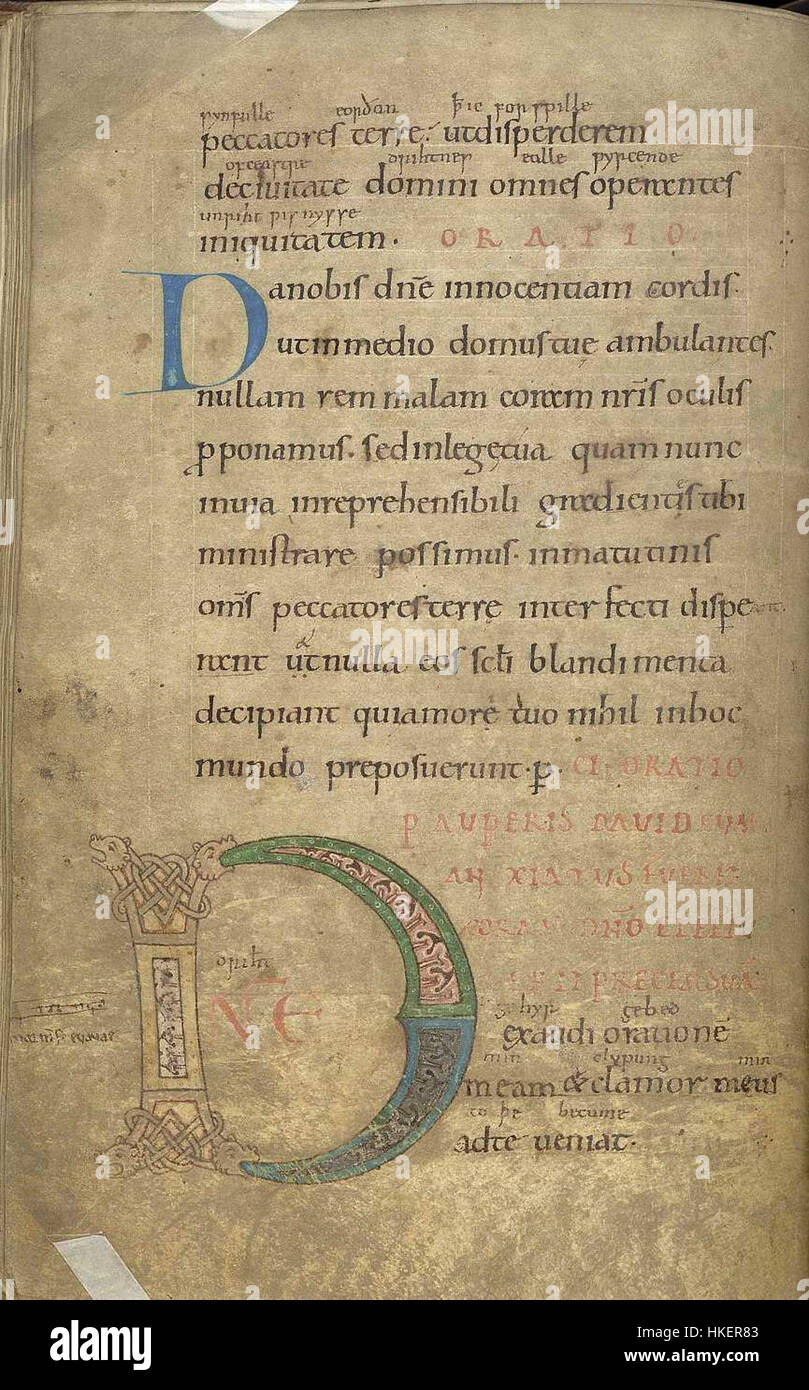 synfulle eorðan þ ic forspille
peccatores terrę. ut disperderem
of ceastre drihtnes ealle wyrcende
deciuitate domini omnes operantes
unriht wisnysse
iniquitatem. ORATIO
Da nobis dn̄e innocentiam cordis.
ut in medio domus tuę ambulantes.
nullam rem malam coram nr̄is oculis
ꝓponamus. sed in lege tua quam nunc
in uia inreprehensibili gradientis tibi
ministrare possimus. in matutinis
om̄s peccatores terrę interfecti dispe
reant ut nulla eos scl̄i blandimenta
decipiant qui amore tuo nihil in hoc
mundo preposuerunt. ꝑ. CI. ORATIO
PAUPERIS DAVID CUM
ANXIATUS FUERIT
driht
DNE
gehyr gebed
exaudi orationē
min clypung min
meam & clamor meus
to þe becume
ad te ueniat.
alamy
Image ID: HKER83
www.alamy.com